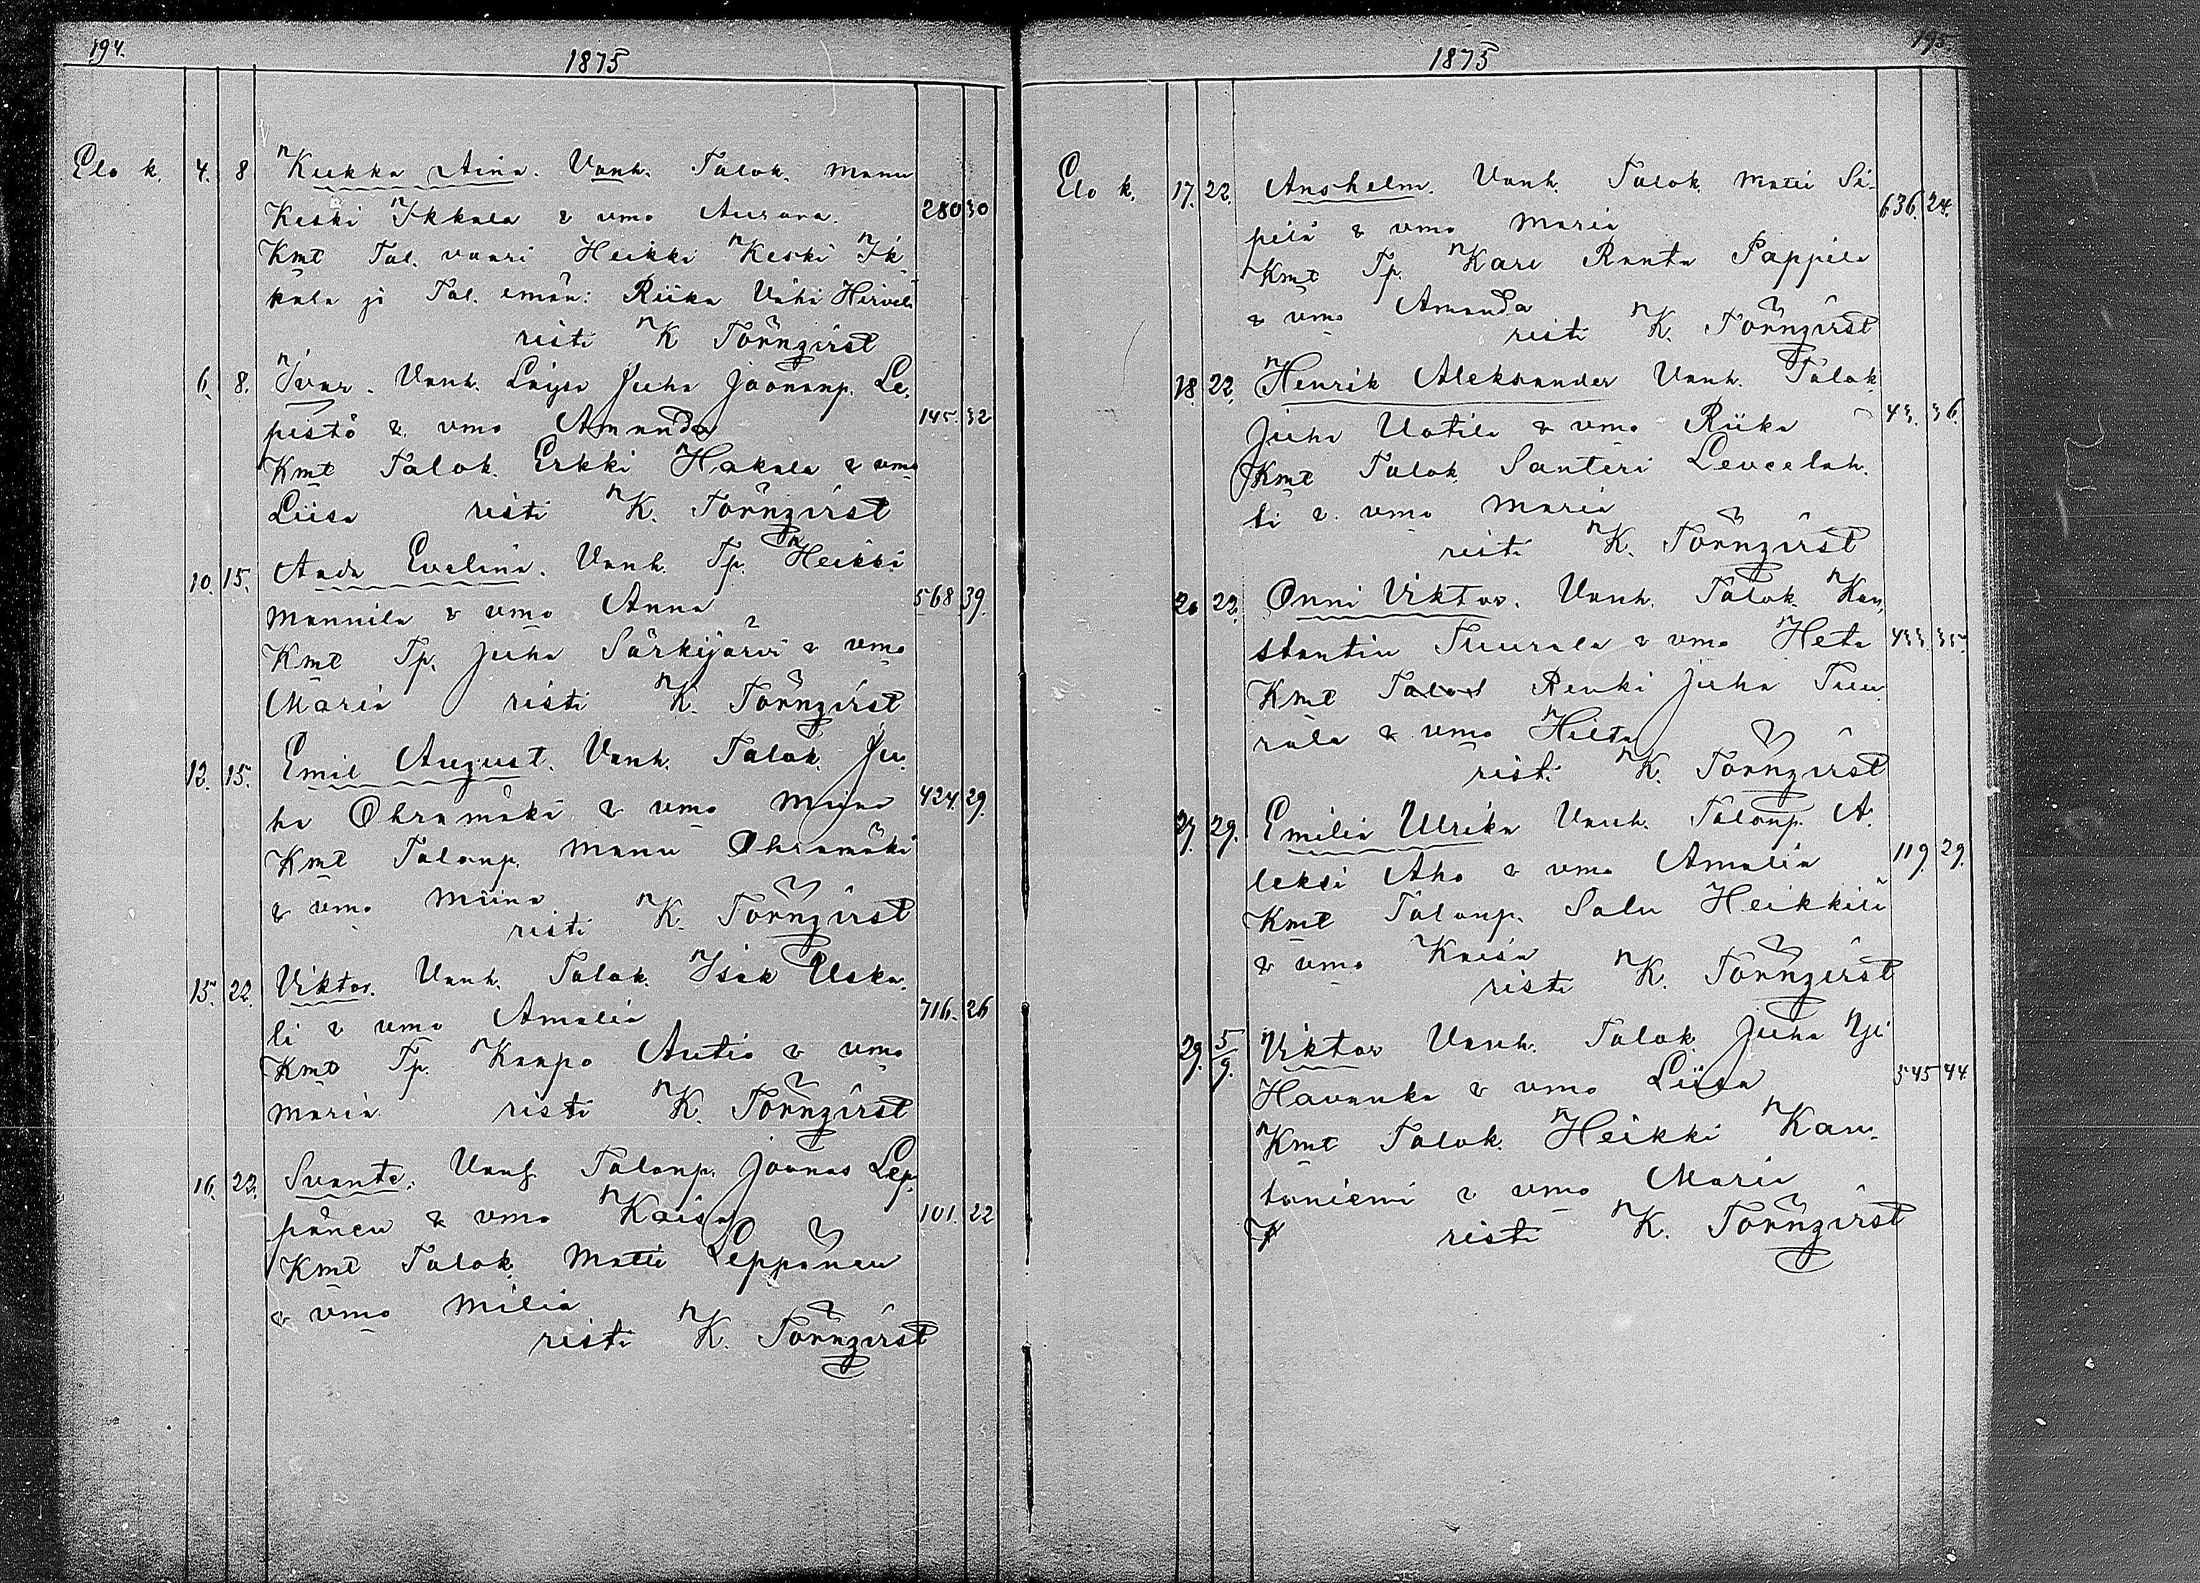 194.
1875
Elo k. 4. 8 Kukka Aina. Vanh. Talok. Manu
Keski Ikkala & vmo Aurora. 280 30
Kmt Tal. vaari Heikki Keski Ik
kala ja Tal. emän: Riika Vähä Hirvelä
risti K Törnqvist
6. 8. Ivar. Vanh. Juha Joonanp. Le,
pistö & vmo Amanda 145. 32
Kmt Talok. Erkki Hakala & vmo
Liisa risti K. Törnqvist
10. 15. Aada Evelina. Vanh. Tp. Heikki
Mannila & vmo Anna 568 39.
Kmt Tp. Juha Särkijärvi & vmo
Maria risti K. Törnqvist
12. 15. Emil August. Vanh. Talok. Ju.
ha Ohramäki & vmo Miina 424. 29.
Kmt Talonp. Manu Ohramäki
& vmo Miina
risti K. Törnqvist
15. 22. Viktor. Vanh. Talok. Isak Uska.
li & vmo Amalia 716. 26
Kmt Tp. Kaapo Autio & vmo
Maria risti K. Törnqvist
16. 22. Svante. Vanh Talonp. Joonas Lep.
pänen & vmo Kaisa 101. 22
Kmt Talok. Matti Leppänen
& vmo Milia
risti K. Törnqvist
195.
1875
Elo k. 17. 22. Anshelm. Vanh. Talok. Matti Si-
pilä & vmo Maria 636. 24.
Kmt Tp. Kare Ranta Pappila
& vmo Amanda
risti K. Törnqvist
18. 22. Henrik Aleksander Vanh. Talok
Juha Uotila & vmo Riika 43. 36.
Kmt Talok. Santeri Levcelah.
ti & vmo Maria
risti K. Törnqvist
20 22. Onni Viktor. Vanh. Talok. Kon,
stantin Tuurala & vmo Heta 433. 35.
Kmt Talok Renki Juha Tuu
rala & vmo Hilta
risti K. Törnqvist
27. 29. Emilia Ulrika Vanh. Talonp. A.
leksi Aho & vmo Amalia 119. 29.
Kmt Talonp. Salu Heikkilä
& vmo Kaisa
risti K. Törnqvist
29. 5/9. Viktor Vanh. Talok. Juha Yli
Havanka & vmo Liisa 545 44.
Kmt Talok. Heikki Kau.
taniemi & vmo Maria
risti K. Törnqvist